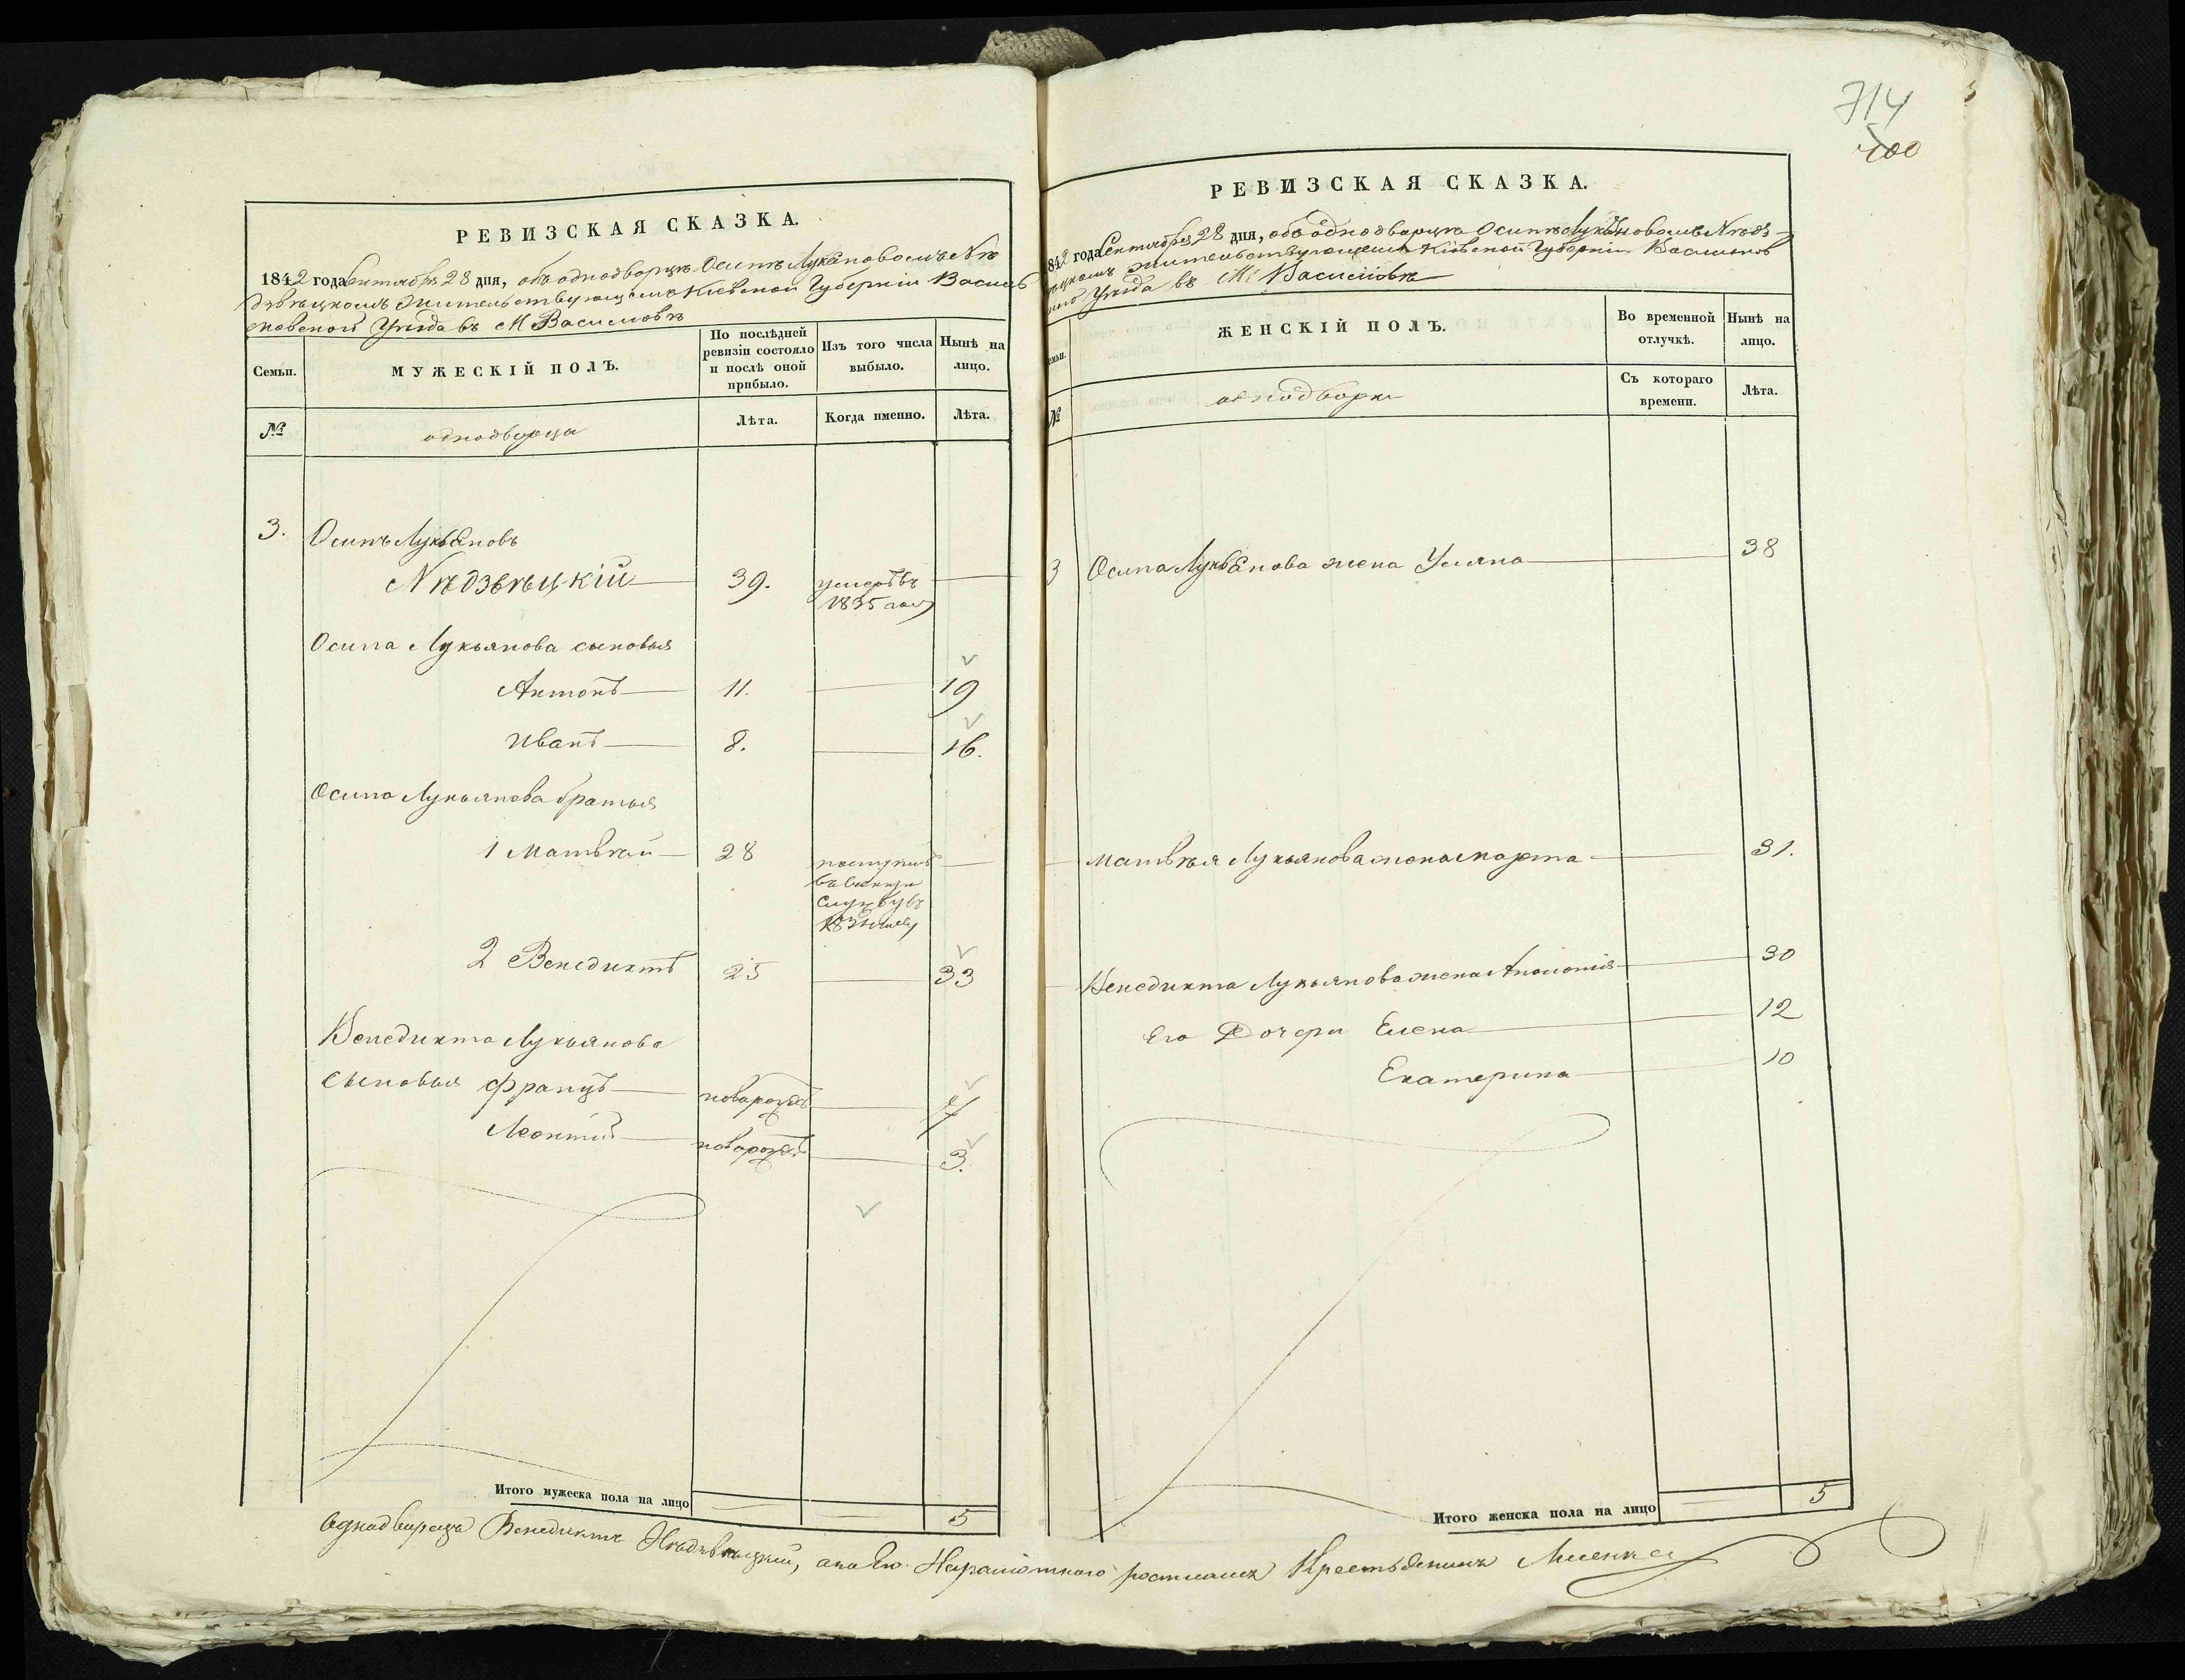 714
400
РЕВИЗСКАЯ СКАЗКА.
1842 года Сентября 28 дня, объ однодворцѣ Осипѣ Лукьяновомъ Нѣ
дзвѣцкомъ жительствующемъ Кіевской Губерніи Василь
ковской Уѣзда въ М Василиовкѣ
Семьи.
МУЖЕСКІЙ ПОЛЪ.
По послѣдней ревизіи состояло и послѣ оной прибыло.
Изъ того числа выбыло.
Нынѣ на лицо.
№
однодворца
Лѣта.
Когда именно.
Лѣта.
3. Осипъ Лукьяновъ
Нѣдзвѣцкій 39. умеръ въ
1835 году
Осипа Лукьянова сыновья
Антонъ 11. 19
Иванъ 8. 16.
Осипа Лукьянова братья
1 Матвѣй 28 поступилъ
службу въ
2 Венедиктъ 25 33
Венедикта Лукьянова
сыновья Францъ новорожд 7
Леонтій новорожд 3.
Итого мужеска пола на лицо 5
РЕВИЗСКАЯ СКАЗКА.
842 года Сентября 28 дня, объ однодворцѣ Осипѣ Лукьяновомъ Нѣдз
вѣцкомъ жительствующемъ Кіевской Губерніи Васильков
ского Уѣзда въ М: Василиовкѣ
емьи.
ЖЕНСКІЙ ПОЛЪ.
Во временной отлучкѣ.
Нынѣ на лицо.
№
однодворки
Съ котораго времени.
Лѣта.
3 Осипа Лукьянова жена Уляна 38
Матвѣя Лукьянова жена Марта 31.
Венедикта Лукьянова жена Аполонія 30
Его Дочери Елена 12
Екатерина 10
Итого женска пола на лицо 5
Однодворецъ Венедиктъ Нѣдзвѣцкій, а за Его Неграмотного росписался Крестьянинъ